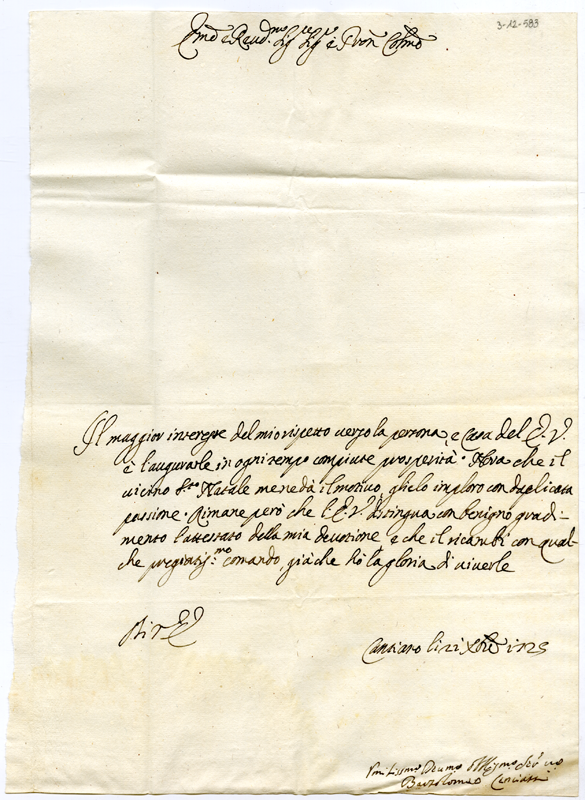 3-12-593
Em̃o e Reud.mo Sig.re Sig.re e Pron Colmo
Il maggior interesse del mio rispetto uerso la persona, e Casa del E. V.
è l'augurarle in ogni tempo compiute prosperità. Hora che il
uicino S.to Natale me ne dà il motiuo, glielo imploro con duplicata
passione. Rimane però che l'E. V. distingua con benigno gradi-
mento l'attestato della mia deuotione, e che il ricambi con qual-
che pregiatiss.mo comando, già che hò la gloria di uiuerle
Di V. E.
Cantiano li 21 Xbre 1725
Vmilissmo Deumo Obligmo Ser.re uo
Bartolomeo